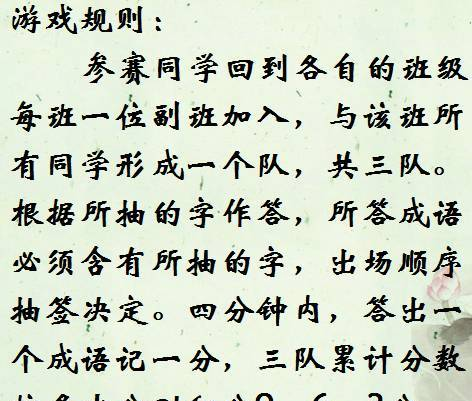 游戏规则：
参赛同学回到各自的班级
每班一位副班加入，与该班所
有同学形成一个队，共三队。
根据所抽的字作答，所答成语
必须含有所抽的字，出场顺序
抽签决定。四分钟内，答出一
个成语记一分，三队累计分数